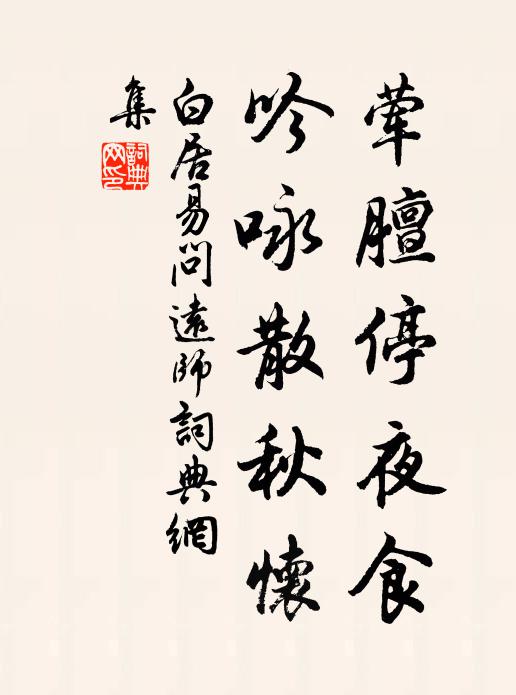 荤膻停夜食
吟咏散秋懷
白居易問遠師詞典網
集
詞典
网印